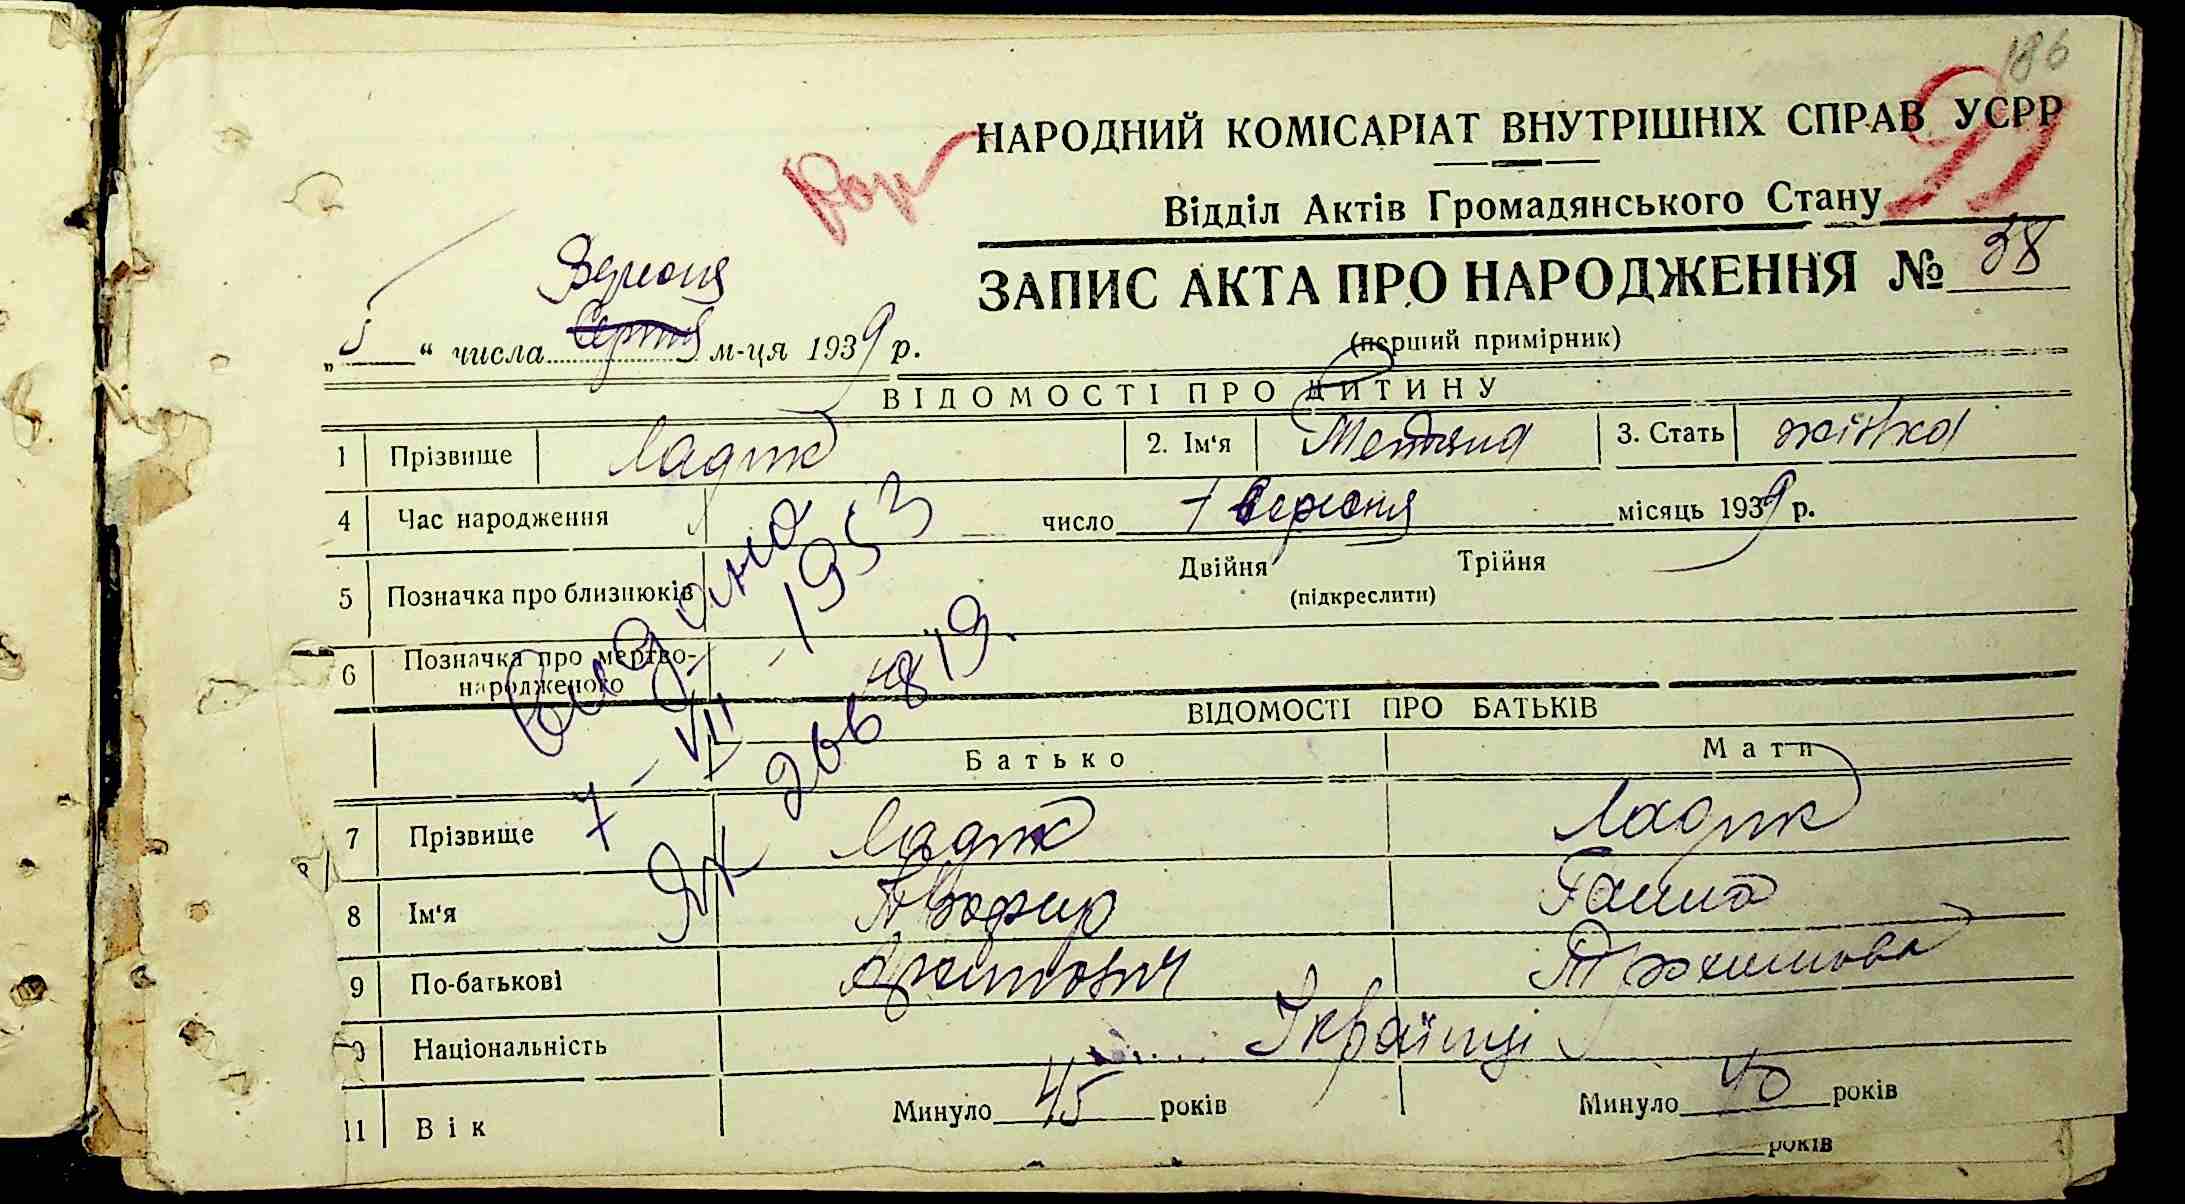 186
НАРОДНИЙ КОМІСАРІАТ ВНУТРІШНІХ СПРАВ УСРР
Відділ Актів Громадянського Стану
ЗАПИС АКТА ПРО НАРОДЖЕННЯ № 38
(перший примірник)
Вересня
„ “ числа Серпня м-ця 1939 р.
ВІДОМОСТІ ПРО ДИТИНУ
1 Прізвище Ладик 2. Ім‘я Тетяна 3. Стать жінка
4 Час народження число 1 вересня місяць 1939 р.
5 Позначка про близнюків Двійня Трійня
(підкреслити)
6 Позначка про мертво-
народженого
Видано
7 - VII - 1953
ВІДОМОСТІ ПРО БАТЬКІВ
Батько Мати
7 Прізвище Ладик Ладик
8 Ім‘я Ганна
9 По-батькові Микитович
Національність Українці
11 Вік Минуло 45 років Минуло 40 років
років